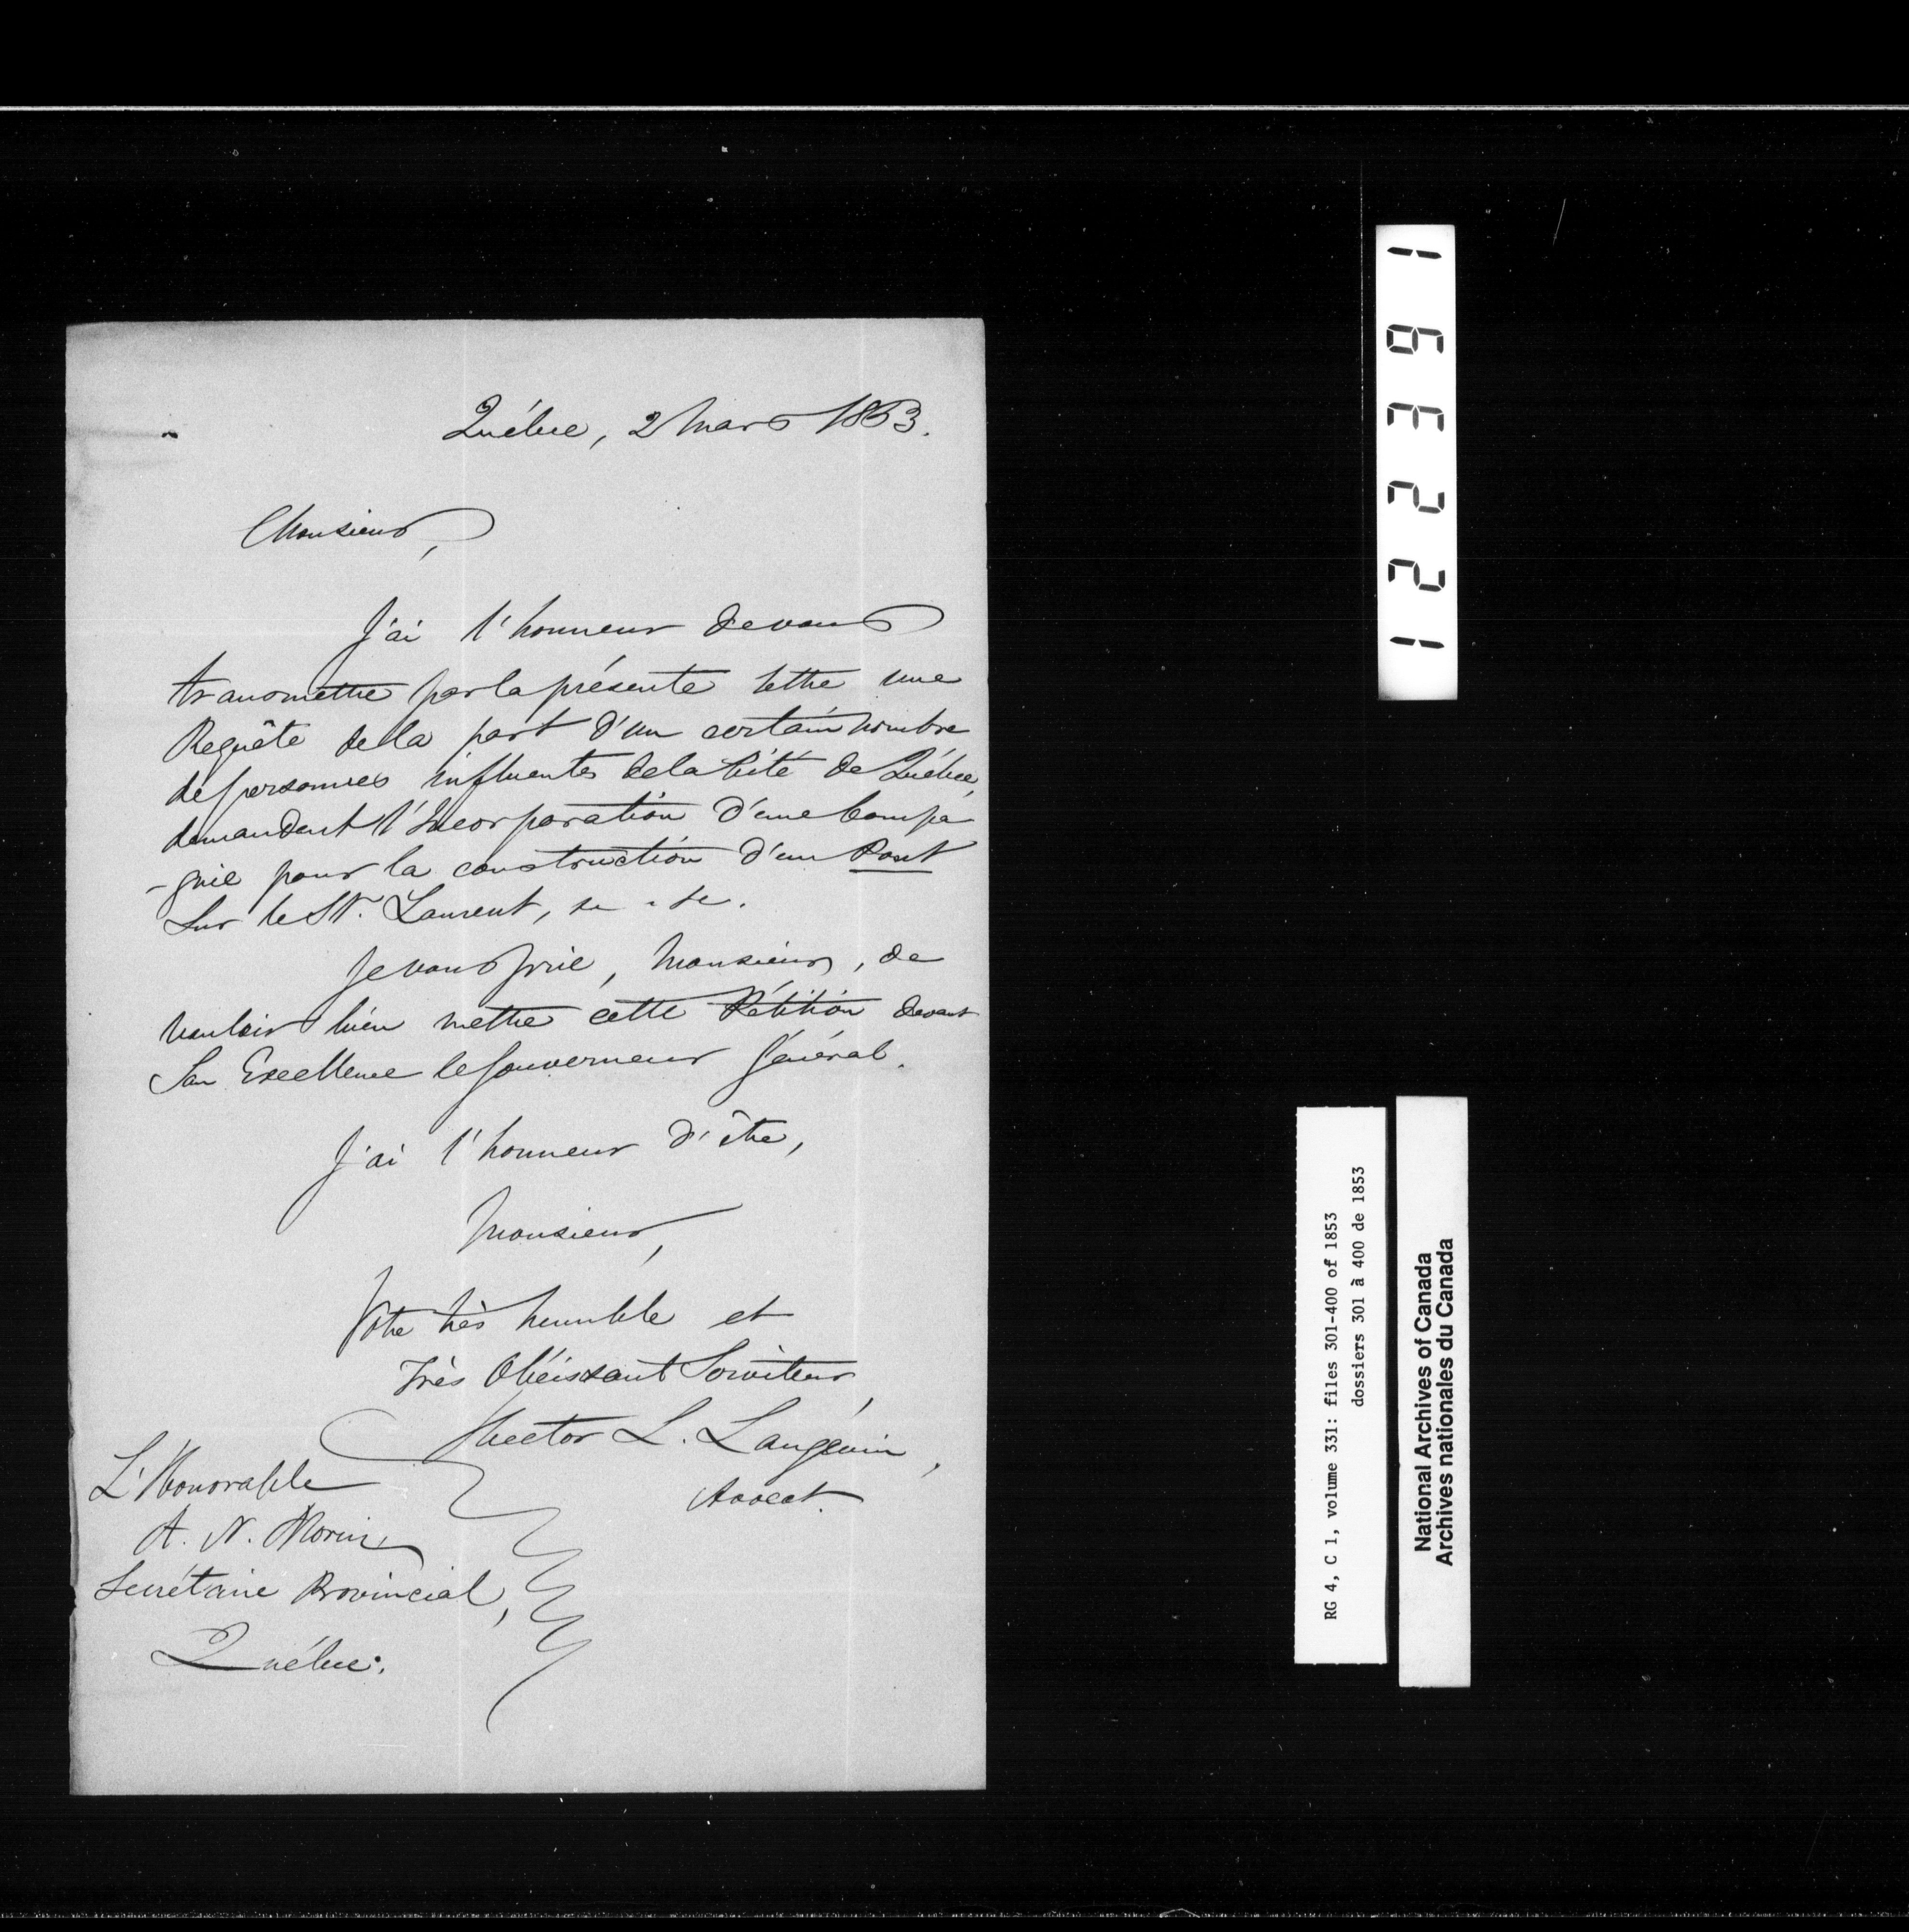 Québec, 2 Mars 1853.
Monsieur,
J'ai l'honneur de vous
transmettre par la présente lettre une
Requête de la part d'un certain nombre
de personnes influentes de la Cité de Québec,
demandant l'Incorporation d'une Compa
-gnie pour la construction d'un Pont
sur le St. Laurent, &c. &c.
Je vous prie, Monsieur, de
vouloir bien mettre cette Pétition devant
Son Excellence le Gouverneur Général.
J'ai l'honneur d'être,
Monsieur,
Votre très humble et
Très Obéissant Serviteur,
Hector L. Langevin,
Avocat.
L'Honorable
A. N. Morin,
Secrétaire Provincial,
Québec.
122361
RG 4, C 1, volume 331: files 301-400 of 1853
dossiers 301 à 400 de 1853
National Archives of Canada
Archives nationales du Canada